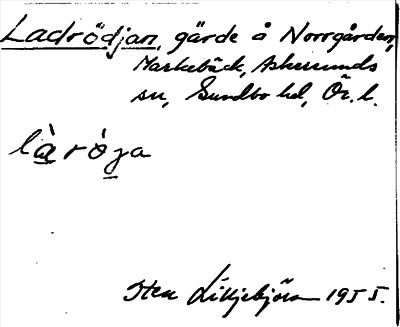 Ladrödjan, gärde å Norrgården,
Markebäck, Askersunds
sn, Sundbo hd, Ör. l.
là̱ rò̱ja
Sten Liljebjörn 1955.